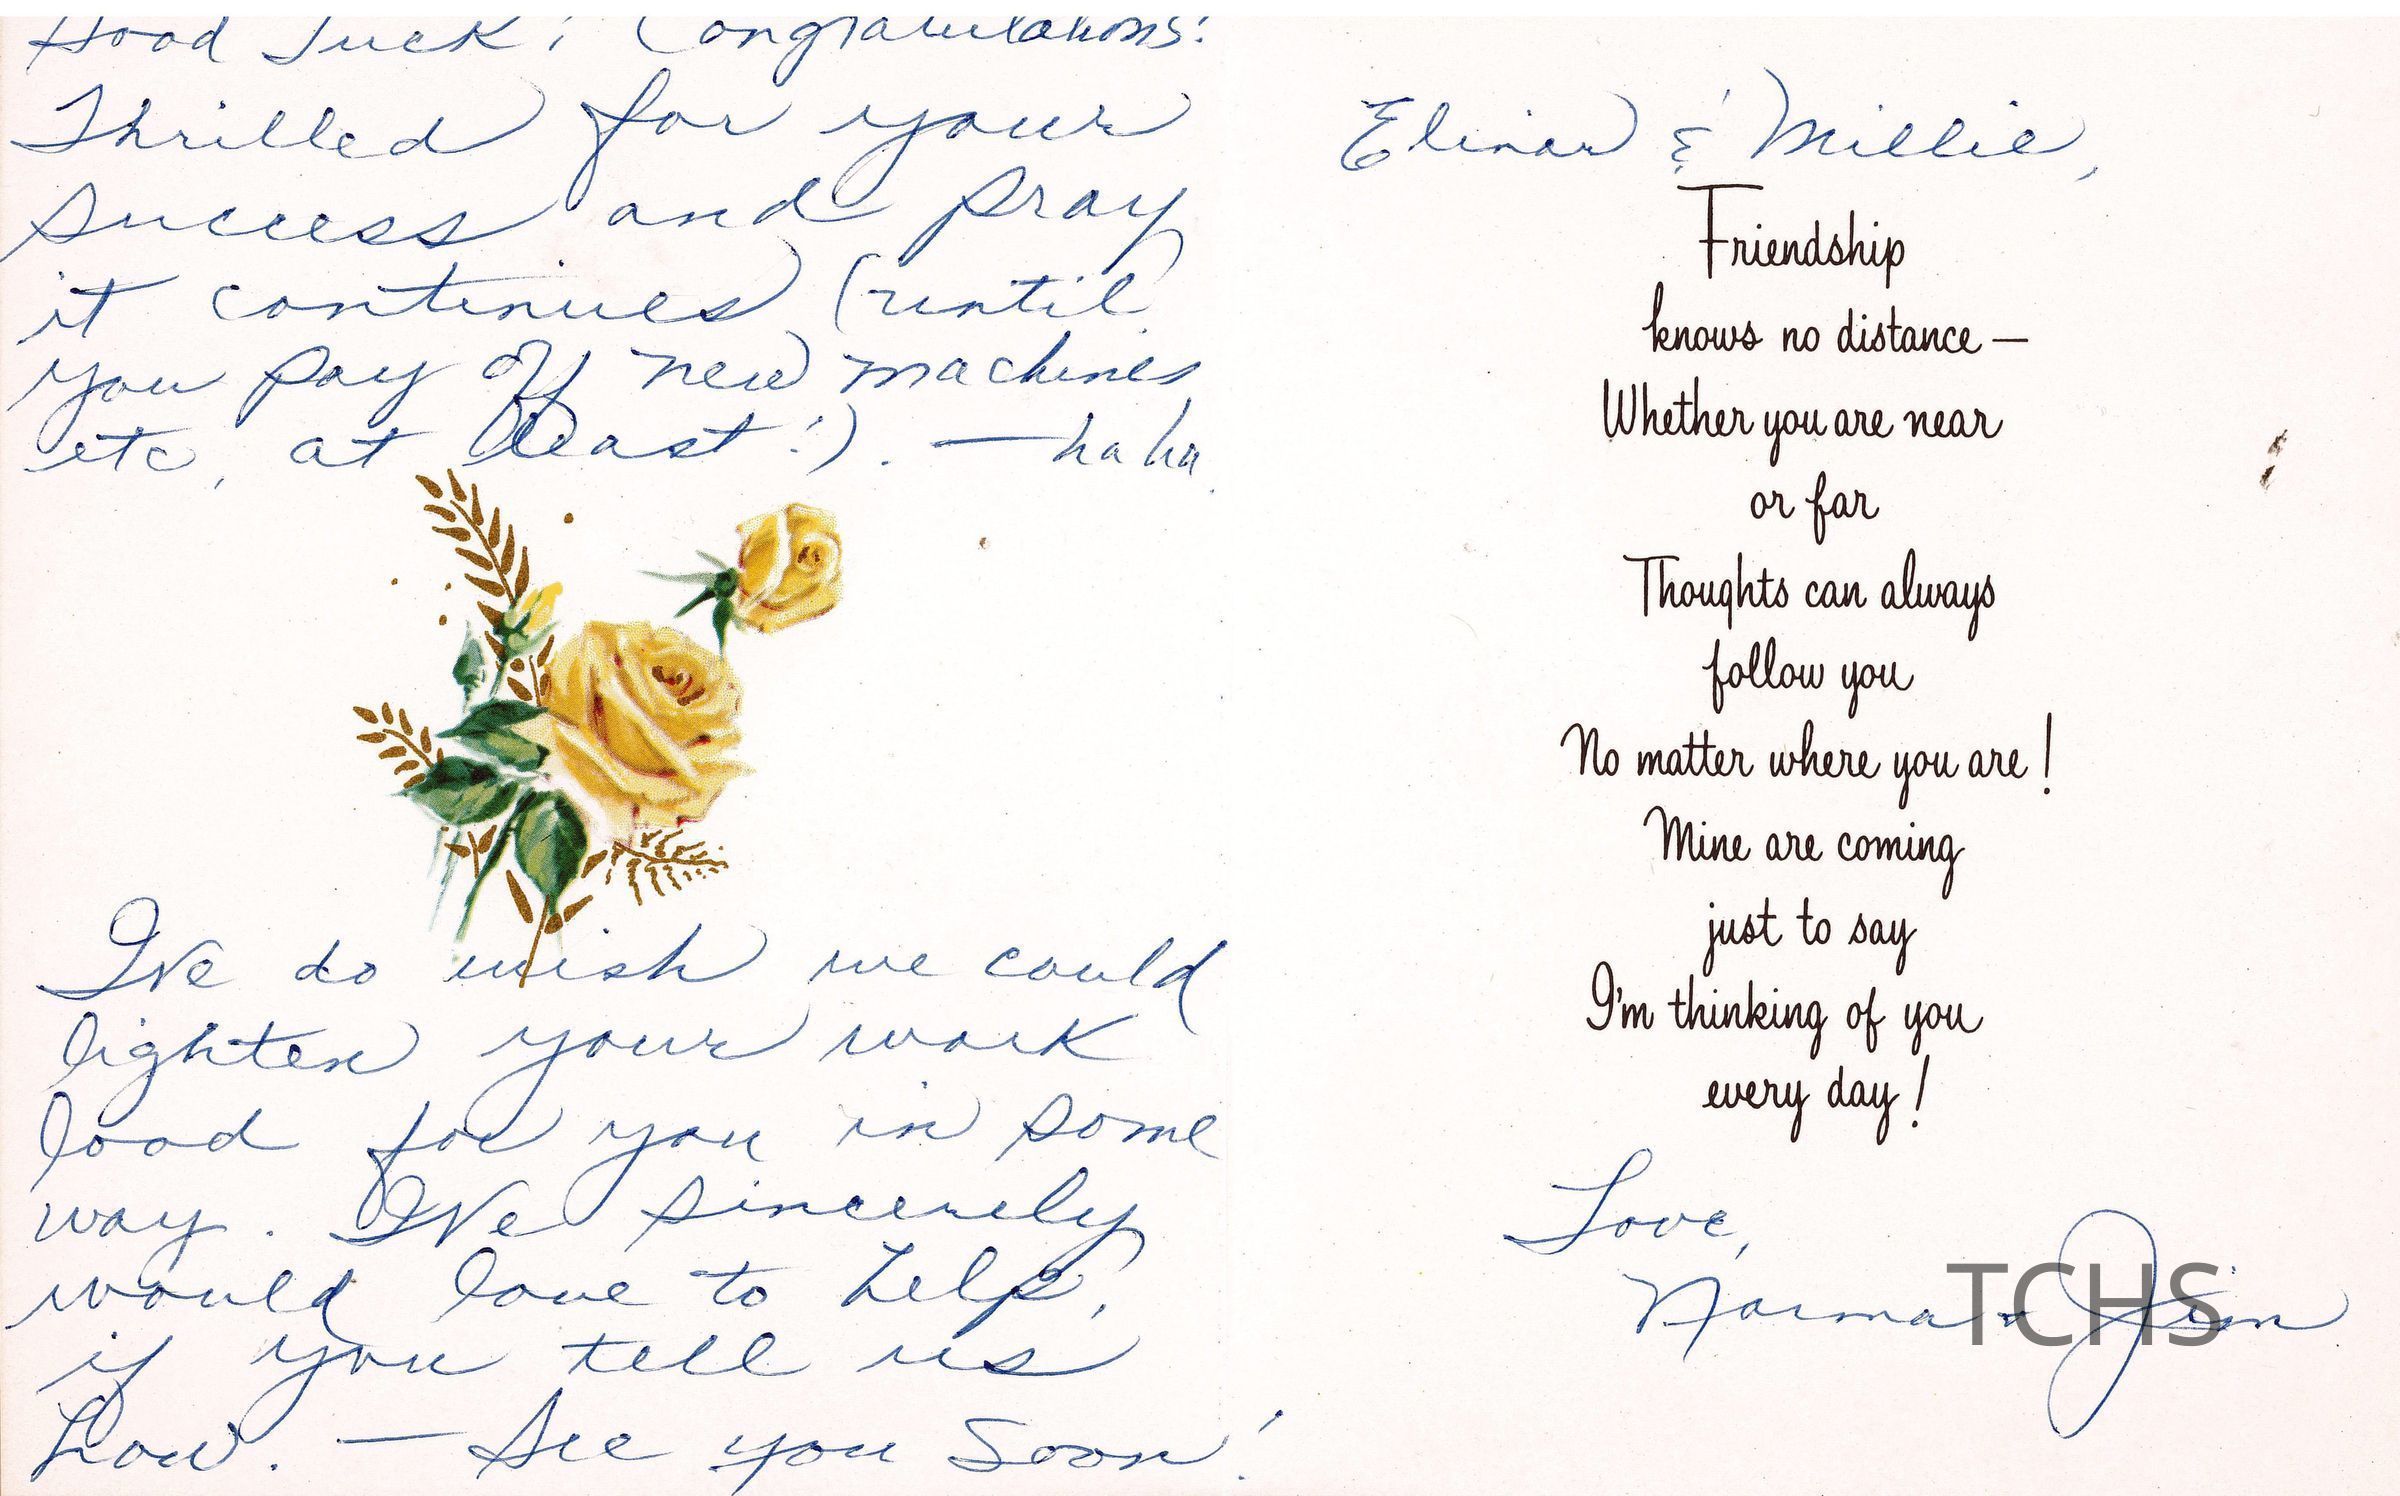 Good Luck! Congratulations!
Thrilled for your
success and pray
it continues (until
you pay off new machines
etc, at least!). — ha ha.
We do wish we could
lighten your work
load for you in some
way. We sincerely
would love to help,
if you tell us
how. — See you soon!
& Millie,
Friendship
knows no distance —
Whether you are near
or far
Thoughts can always
follow you
No matter where you are!
Mine are coming
just to say
I'm thinking of you
every day!
Love,
Norma & Jim
TCHS